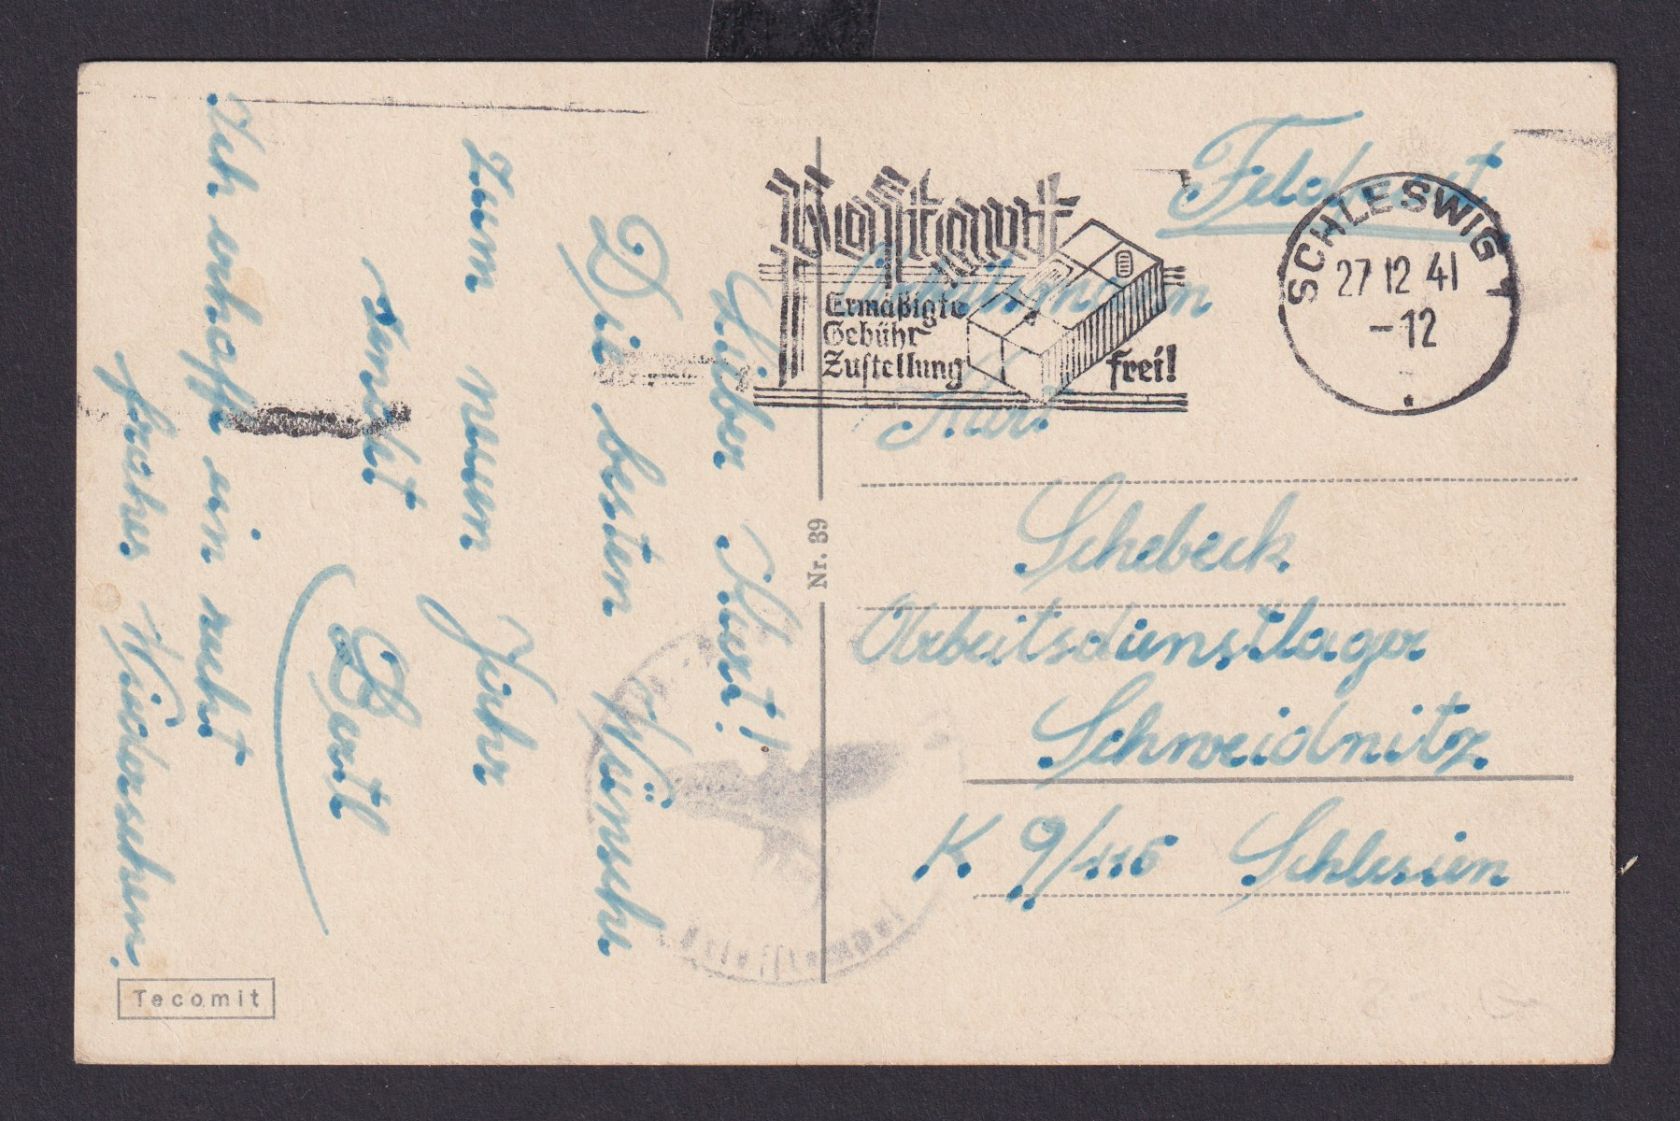 Feldpost
Postgut
Ermäßigte
Gebühr
Zustellung
frei!
SCHLESWIG 1
27 12 41
-12
Kurt
Schebeck
Arbeitsdienstlager
Schweidnitz
K. 9/115 Schlesien
Nr. 39
Lieber Kurt!
Die besten Wünsche
zum neuen Jahr
sendet
Bartl
Ich erhoffe ein recht
frohes Wiedersehen.
Tecomit